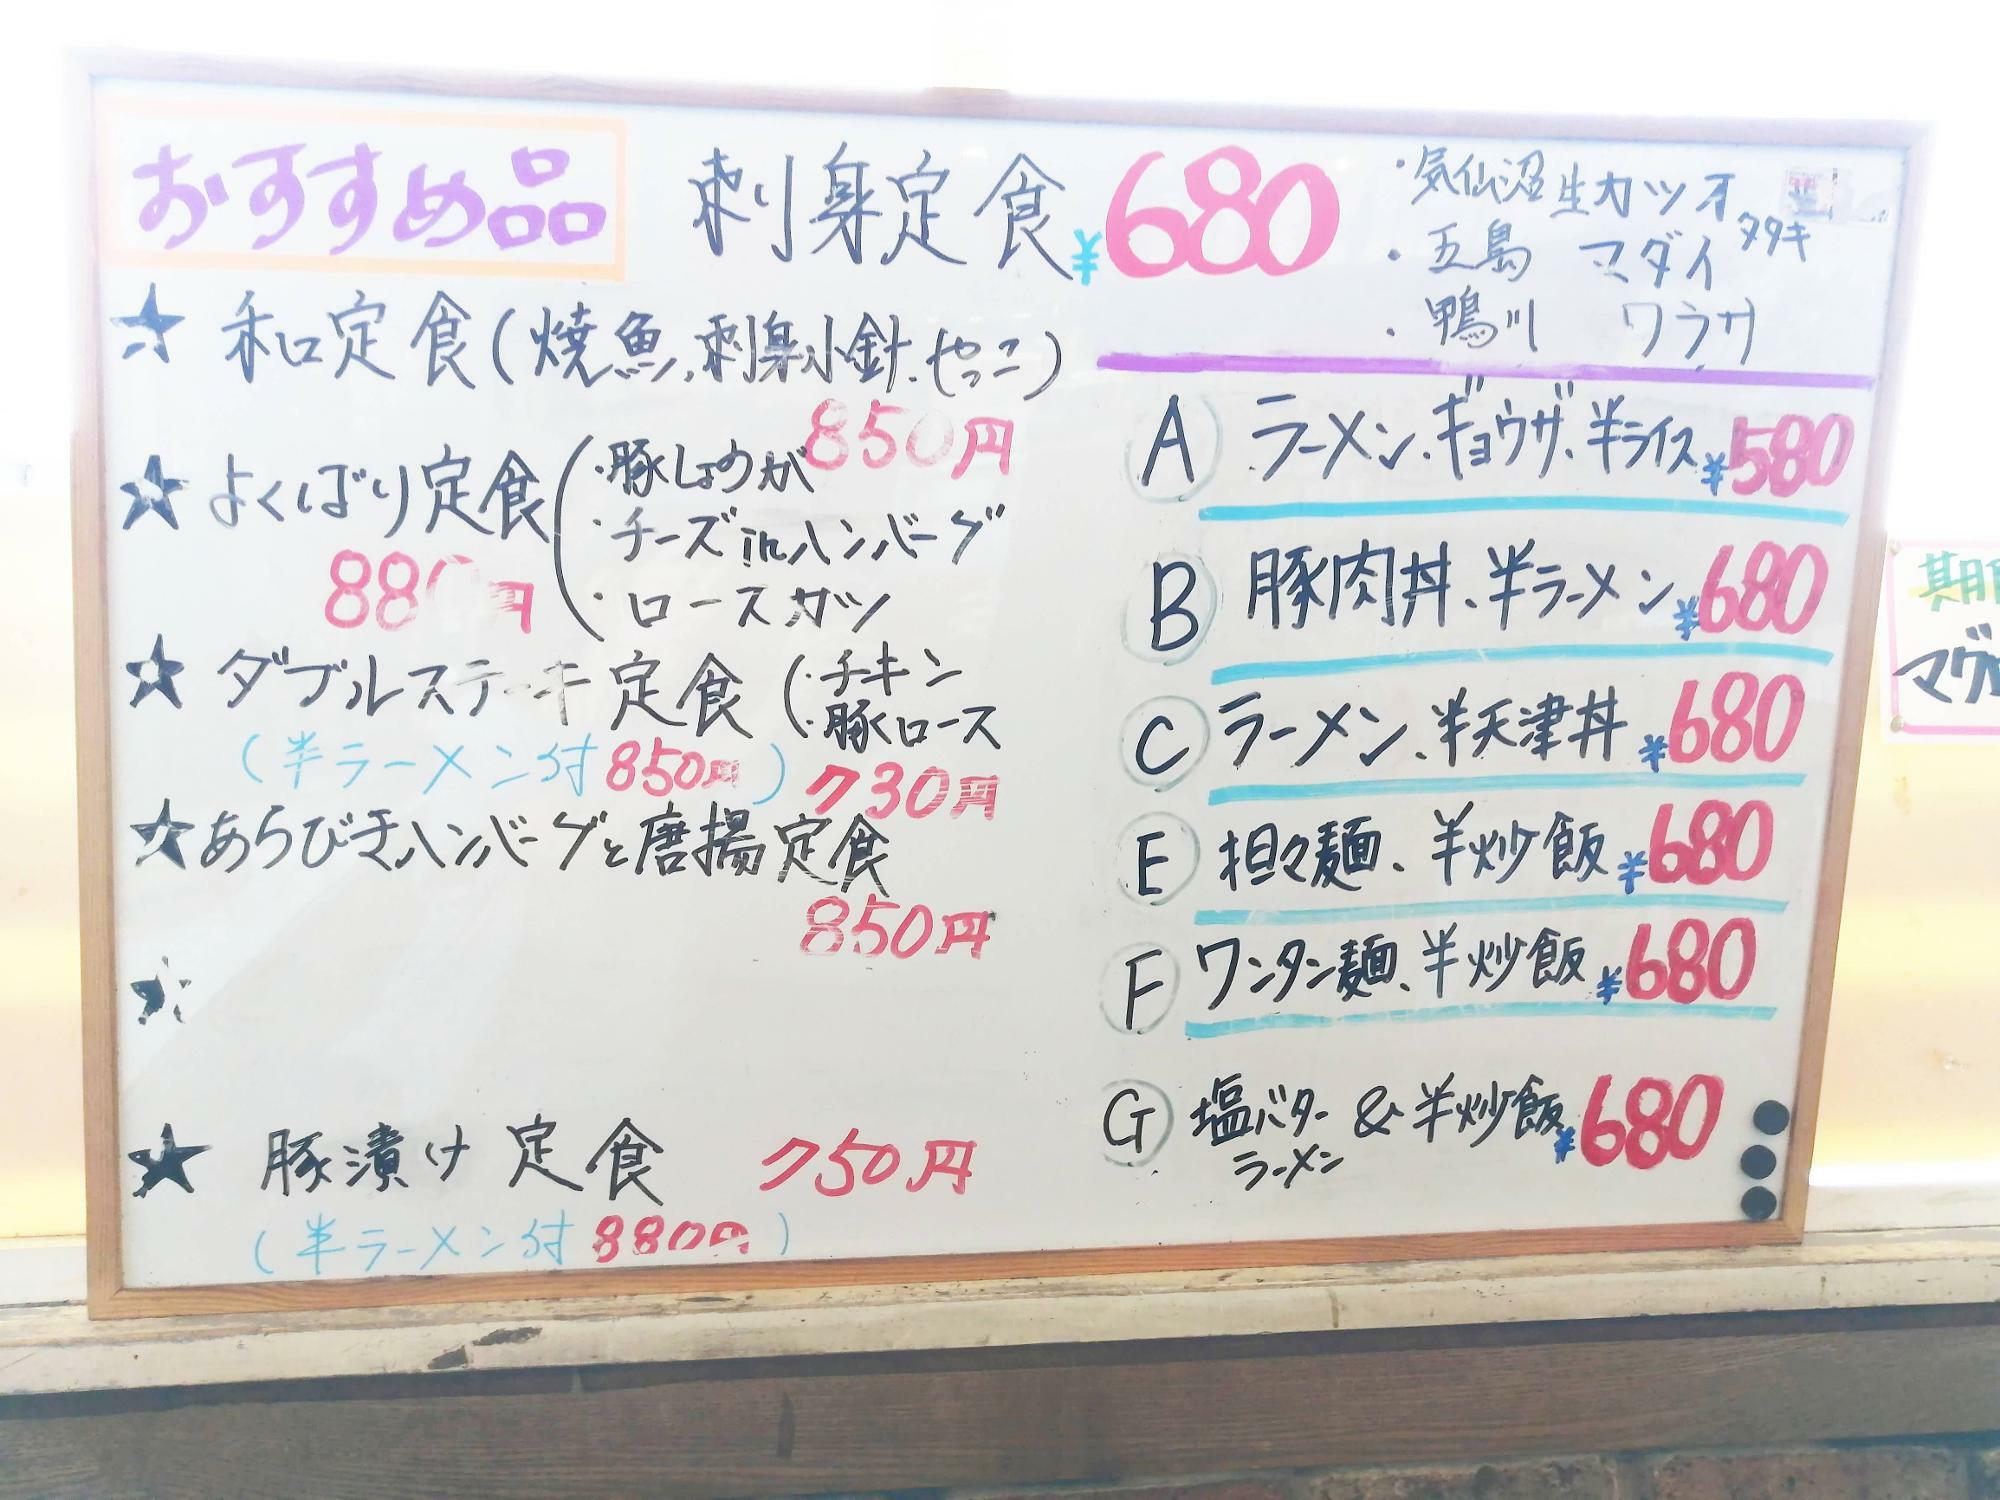 おすすめ品
刺身定食 ¥680
・気仙沼 生カツオ タタキ
・五島 マダイ
・鴨川 ワラサ
★ 和定食(焼魚、刺身小針、やっこ)
850円
★ よくばり定食
880円
・豚しょうが
・チーズinハンバーグ
・ロースカツ
★ ダブルステーキ定食
・チキン
・豚ロース
(半ラーメン付 850円)
730円
★ あらびきハンバーグと唐揚定食
850円
★ 豚漬け定食 750円
(半ラーメン付 880円)
A ラーメン、ギョウザ、半ライス ¥580
B 豚肉丼、半ラーメン ¥680
C ラーメン、半天津丼 ¥680
E 担々麺、半炒飯 ¥680
F ワンタン麺、半炒飯 ¥680
G 塩バターラーメン & 半炒飯 ¥680
期
マグ